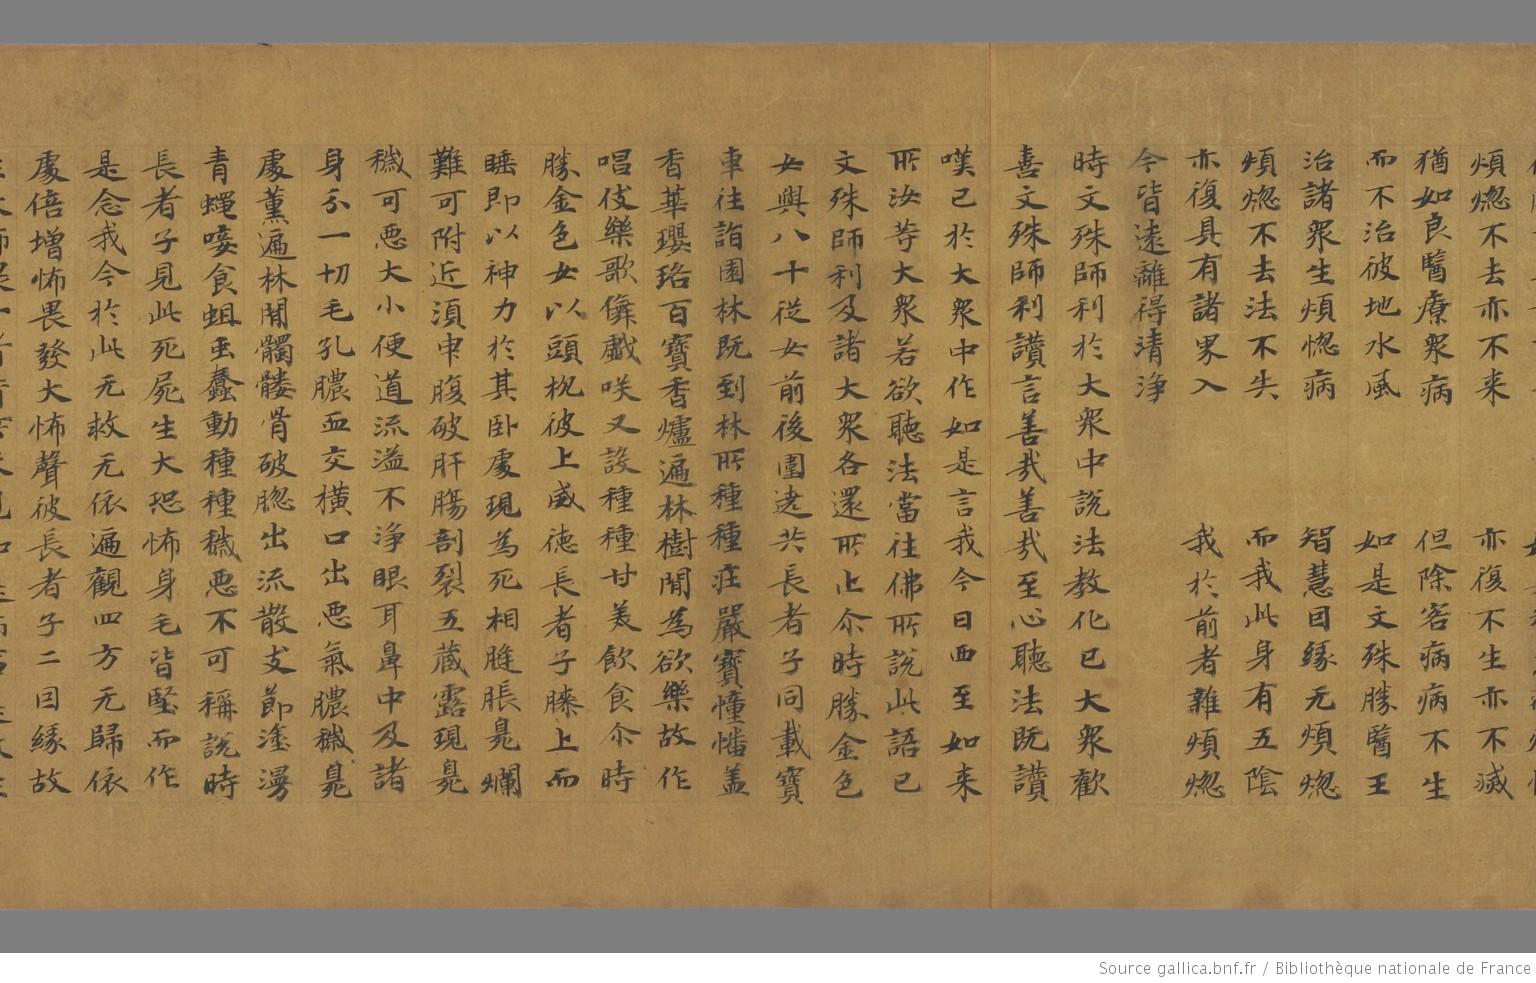 煩惚不去亦不来 亦復不生亦不滅
猶如良醫療衆病 但除客病病不生
而不治彼地水風 如是文殊勝醫王
治諸衆生煩惚病 智慧因縁无煩惚
煩惚不去法不失 而我此身有五陰
亦復具有諸界入 我於前者雜煩惚
今皆遠離得清浄
時文殊師利於大衆中説法教化已大衆歡
喜文殊師利讚言善哉善哉至心聽法既讚
嘆已於大衆中作如是言我今日西至如来
所汝等大衆若欲聽法當往佛所説此語已
文殊師利及諸大衆各還所止尒時勝金色
女與八十從女前後圍遶共長者子同載寶
車往詣園林既到林所種種荘嚴寶幢幡盖
香華瓔珞百寶香爐遍林樹間為欲樂故作
唱伎樂歌儛戯咲又設種種甘美飲食尒時
勝金色女以頭枕彼上威徳長者子膝上而
睡即以神力於其卧處現為死相膖脹臰爛
難可附近湏申腹破肝膓剖裂五蔵露現臰
穢可悪大小便道流溢不淨眼耳鼻中及諸
身分一切毛孔膿血交横口出悪氣膿穢臰
處薫遍林間髑髏骨破䐉出流散支節塗漫
青蠅唼食蛆虫蠢動種種穢悪不可稱説時
長者子見此死屍生大恐怖身毛皆竪而作
是念我今於此无救无依遍觀四方无歸依
處倍增怖畏發大怖聲彼長者子二因縁故